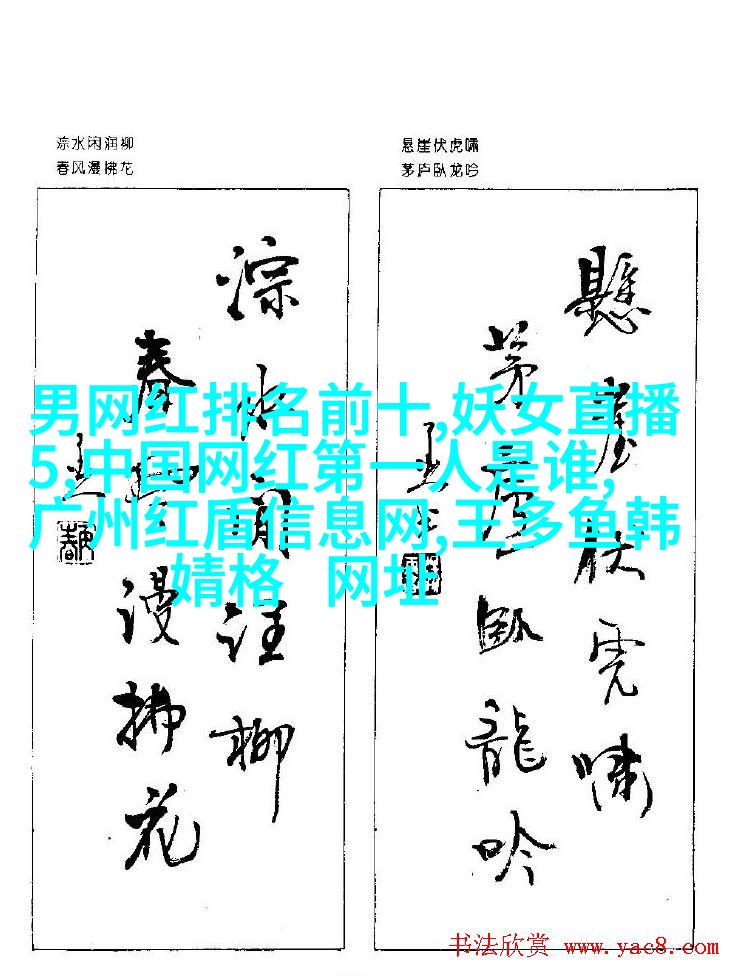 淙水闲润柳
春风漫拂花
悬崖伏虎啸
茅庐卧龙吟
淙水闲注柳
春风漫拂花
懸崖伏虎啸
茅庐臥龍吟
男网红排名前十,妖女直播
5,中国网红第一人是谁,
广州红盾信息网,王多鱼韩
婧格 网址
书法欣赏 www.yac8.com